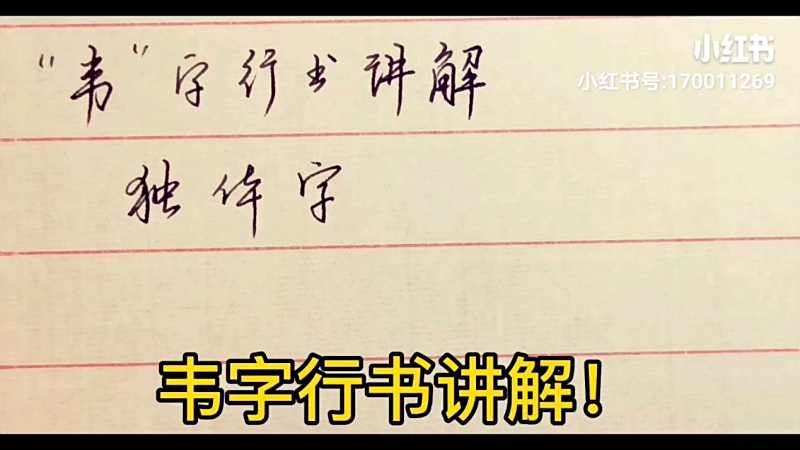 小红书
小红书号:170011269
"韦"字行书讲解
独体字
韦字行书讲解!